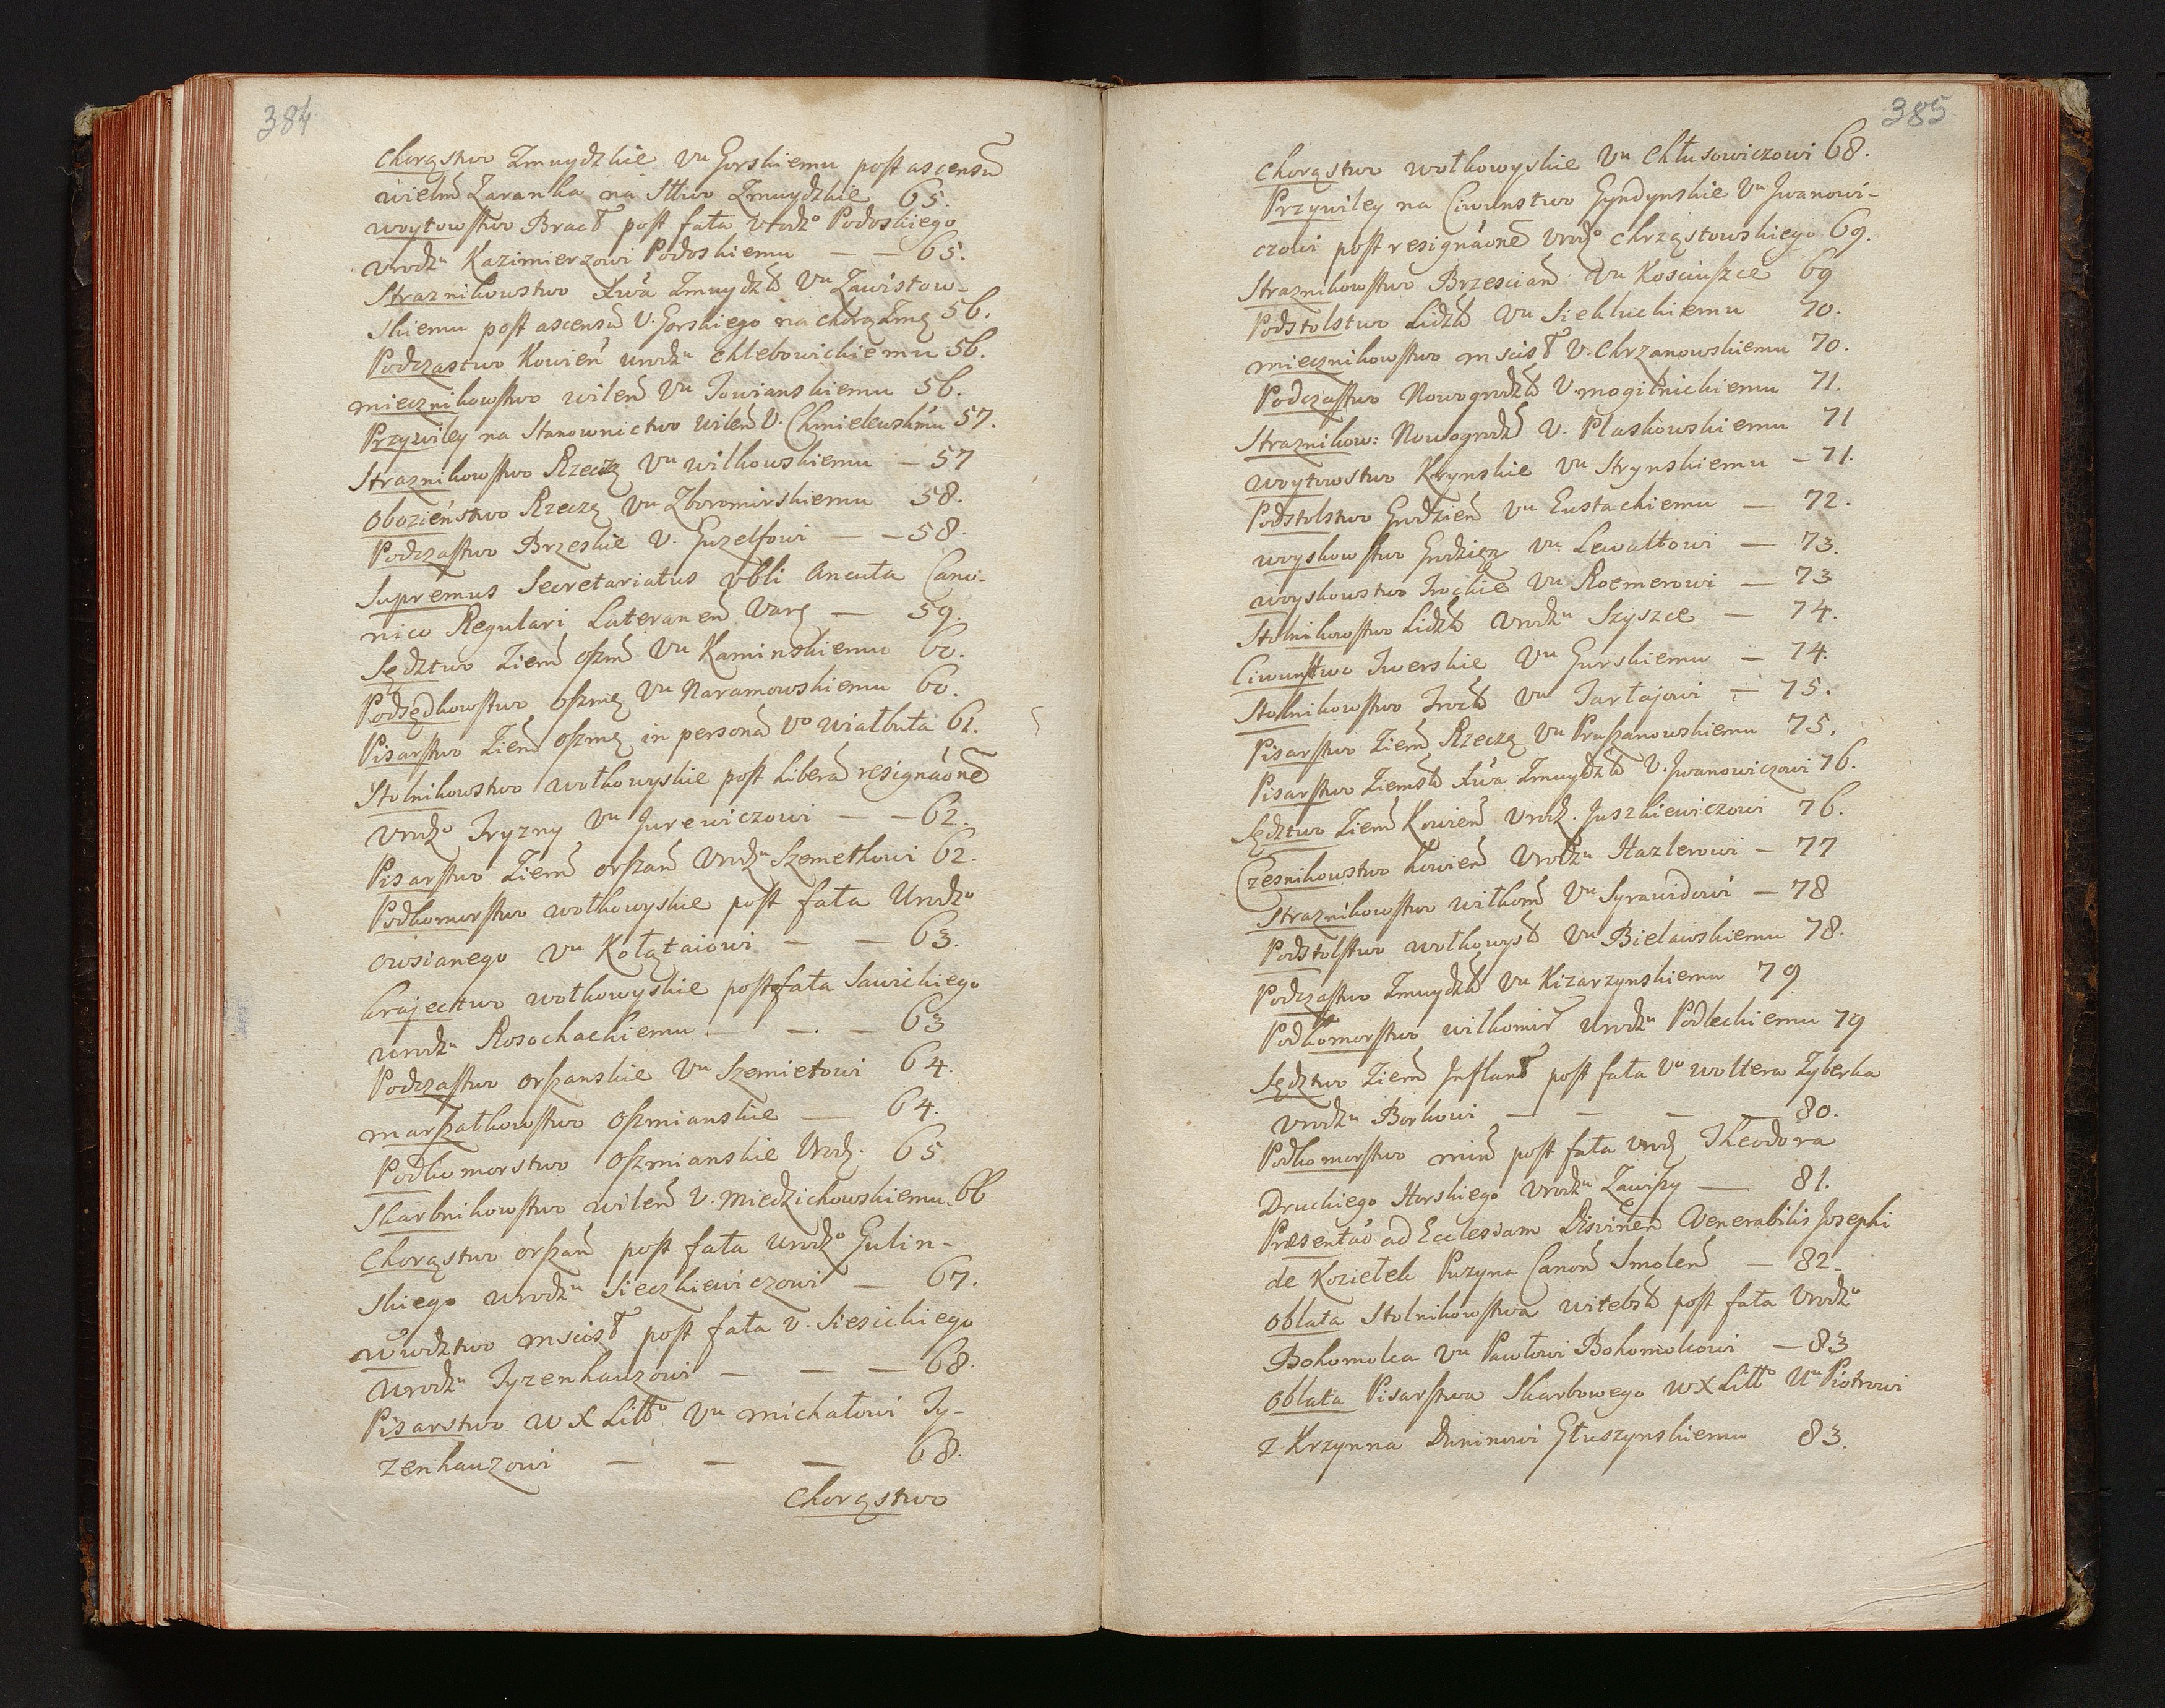 384
Chorąstwo Zmuydzkie Vu Gorskiemu post ascensu
wielm Zaranka na Sttwo Zmuydzkie 65.
woytowstwo Bracł post fata Vrodzo Podoskiego
Vrodzu Kazimierzowi Podoskiemu — — 65.
Straznikowstwo Xwa Zmuydzk Vu Zawistow-
Skiemu post ascensu V. Gorskiego na chorąZmę 56.
Podczastwo Kowień urodzu Chlebowickiemu 56.
miecznikowstwo wileń Vu Jowianskiemu 56.
Przywiley na Stanownictwo wileń V. Chmielewskimu 57.
Straznikowstwo Rzeczę Vu wilkowskiemu — 57
Obozieństwo Rzeczę Vu Zboromirskiemu 58.
Podczastwo Brzeskie V. Guzelfowi — — 58.
Supremus Secretariatus Vbli Ancuta Cano-
nico Regulari Lateranen Varę — 59.
Sędztwo Ziem oszm Vu Kaminskiemu 60.
Podsędkowstwo oszmę Vu Naramowskiemu 60.
Pisarstwo Ziem oszmę in persona Vo wiałbuta 61.
Stolnikowstwo wołkowyskie post Liberã resignãone
Vrodzo Tryzny Vu Jurewiczowi — — 62.
Pisarstwo Ziem orszań Vrodzu Szemetkowi 62.
Podkomorstwo wołkowyskie post fata Urodzo
owsianego Vu Kołątaiowi — — 63.
Krajectwo wołkowyskie post fata Sawickiego
urodzu Rosochackiemu — — — 63
Podczastwo orszanskie Vu Szemietowi 64.
marszałkowstwo oszmianskie — 64.
Podkomorstwo oszmianskie Urodz. 65
Skarbnikowstwo wileń V. Miedzichowskiemu. 66
Chorąstwo orszań post fata urodzo Gulin-
Skiego urodzu Sieczkiewiczowi — 67.
wwdztwo mscisł post fata V. Siesickiego
Urodzu Tyzenhauzowi — — — 68.
Pisarstwo W X Litto Vu michałowi Ty-
zenhauzowi — — — 68.
Chorąstwo
385
Chorąstwo wołkowyskie Vu Chłusowiczowi 68.
Przywiley na Ciwunstwo Gyndynskie Vu Jwanowi-
czowi post resignãone Vrodzo Chrząstowskiego 69.
Straznikowstwo Brzescian Vu Kosciuszce 69
Podstolstwo Lidzk Vu Siekluckiemu 70.
miecznikowstwo mscisł V. Chrzanowskiemu 70.
Podczastwo Nowogrodzk V. mogilnickiemu 71.
Straznikow: Nowogrodz V. Płaskowskiemu 71
woytowstwo Krynskie Vu Strynskiemu — 71.
Podstolstwo Grodzień Vu Eustachiemu — 72.
woyskowstwo Grodzieę Vu Lewałtowi — 73.
woyskowstwo Trockie Vu Roemerowi — 73
Stolnikowstwo Lidzk Vrodzu Szyszce — 74.
Ciwunstwo Twerskie Vu Gurskiemu — 74.
Stolnikowstwo Trock Vu Tarłajowi — 75.
Pisarstwo Ziem Rzeczę Vu Pruszanowskiemu 75.
Pisarstwo Ziemsk Xwa Zmuydzk V. Jwanowiczowi 76.
Sędztwo Ziem Kowień Vrodz. Juszkiewiczowi 76.
Czesnikowstwo Kowień Vrodzu Hazlerowi — 77
Straznikowstwo wiłkom Vu Syrawidowi — 78
Podstolstwo wołkowysk Vu Bielawskiemu 78.
Podczastwo Zmuydzk Vu Kizarzynskiemu 79
Podkomorstwo wiłkomir Urodzu Podleckiemu 79
Sędztwo Ziem Jnflant post fata Vo woltera Zyberka
Vrodzu Borkowi — — — — 80.
Podkomorstwo miń post fata Vrodz Theodora
Druckiego Horskiego Vrodzu Zawiszy — 81.
Præsentãô ad Ecclesiam Disvinen Venerabilis Josephi
de Kozielek Puzyna Canon Smolen — 82.
Oblata Stolnikowstwa witebsk post fata Vrodzo
Bohomolca Vu Pawłowi Bohomolcowi — 83
Oblata Pisarstwa Skarbowego W X Litto Uu Piotrowi
z Krzynna Duninowi Głuszynskiemu 83.